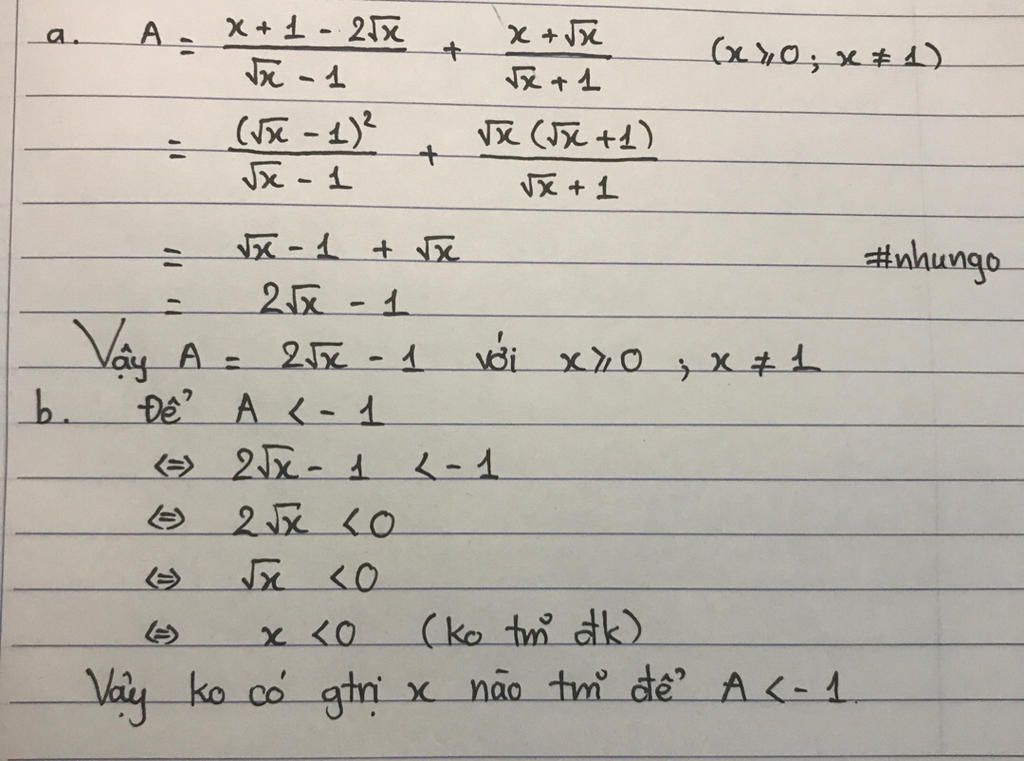 a. A = (x + 1 - 2√x)/(√x - 1) + (x + √x)/(√x + 1) (x ⩾ 0 ; x ≠ 1)
= (√x - 1)²/(√x - 1) + √x (√x + 1)/(√x + 1)
= √x - 1 + √x #nhungo
= 2√x - 1
Vậy A = 2√x - 1 với x ⩾ 0 ; x ≠ 1
b. Để A < - 1
⇔ 2√x - 1 < - 1
⇔ 2√x < 0
⇔ √x < 0
⇔ x < 0 (ko tm̉ đk)
Vậy ko có gtrị x nào tm̉ để A < - 1.